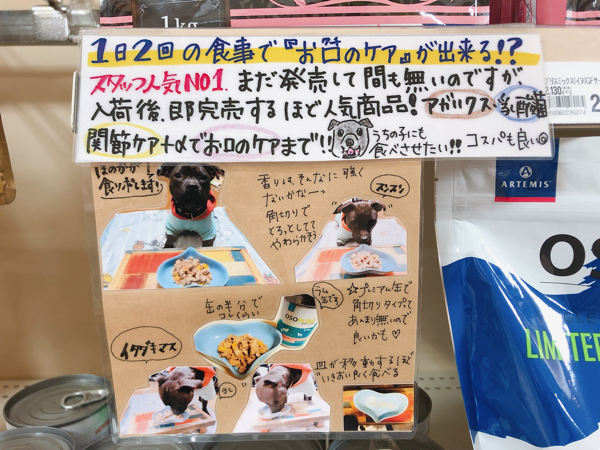 1kg
1日2回の食事で『お口のケア』が出来る!?
スタッフ人気NO1. まだ発売して間も無いのですが
入荷後、即完売するほど人気商品! アガリクス 乳酸菌
関節ケア+αでお口のケアまで!! うちの子にも食べさせたい!! コスパも良い
ほのかが食リポします!
香りは、そんなに強くないかなーっ
角切りでとろっとしててやわらかそう
スンスン
缶の半分でコレくらい
ラム缶です
☆プレミアム缶で
角切りタイプって
あんまり無いので
良いかも♡
イタダキマス
皿が移動するほど
いきおい良く食べる
ARTEMIS
OS
LIMITE
2,130